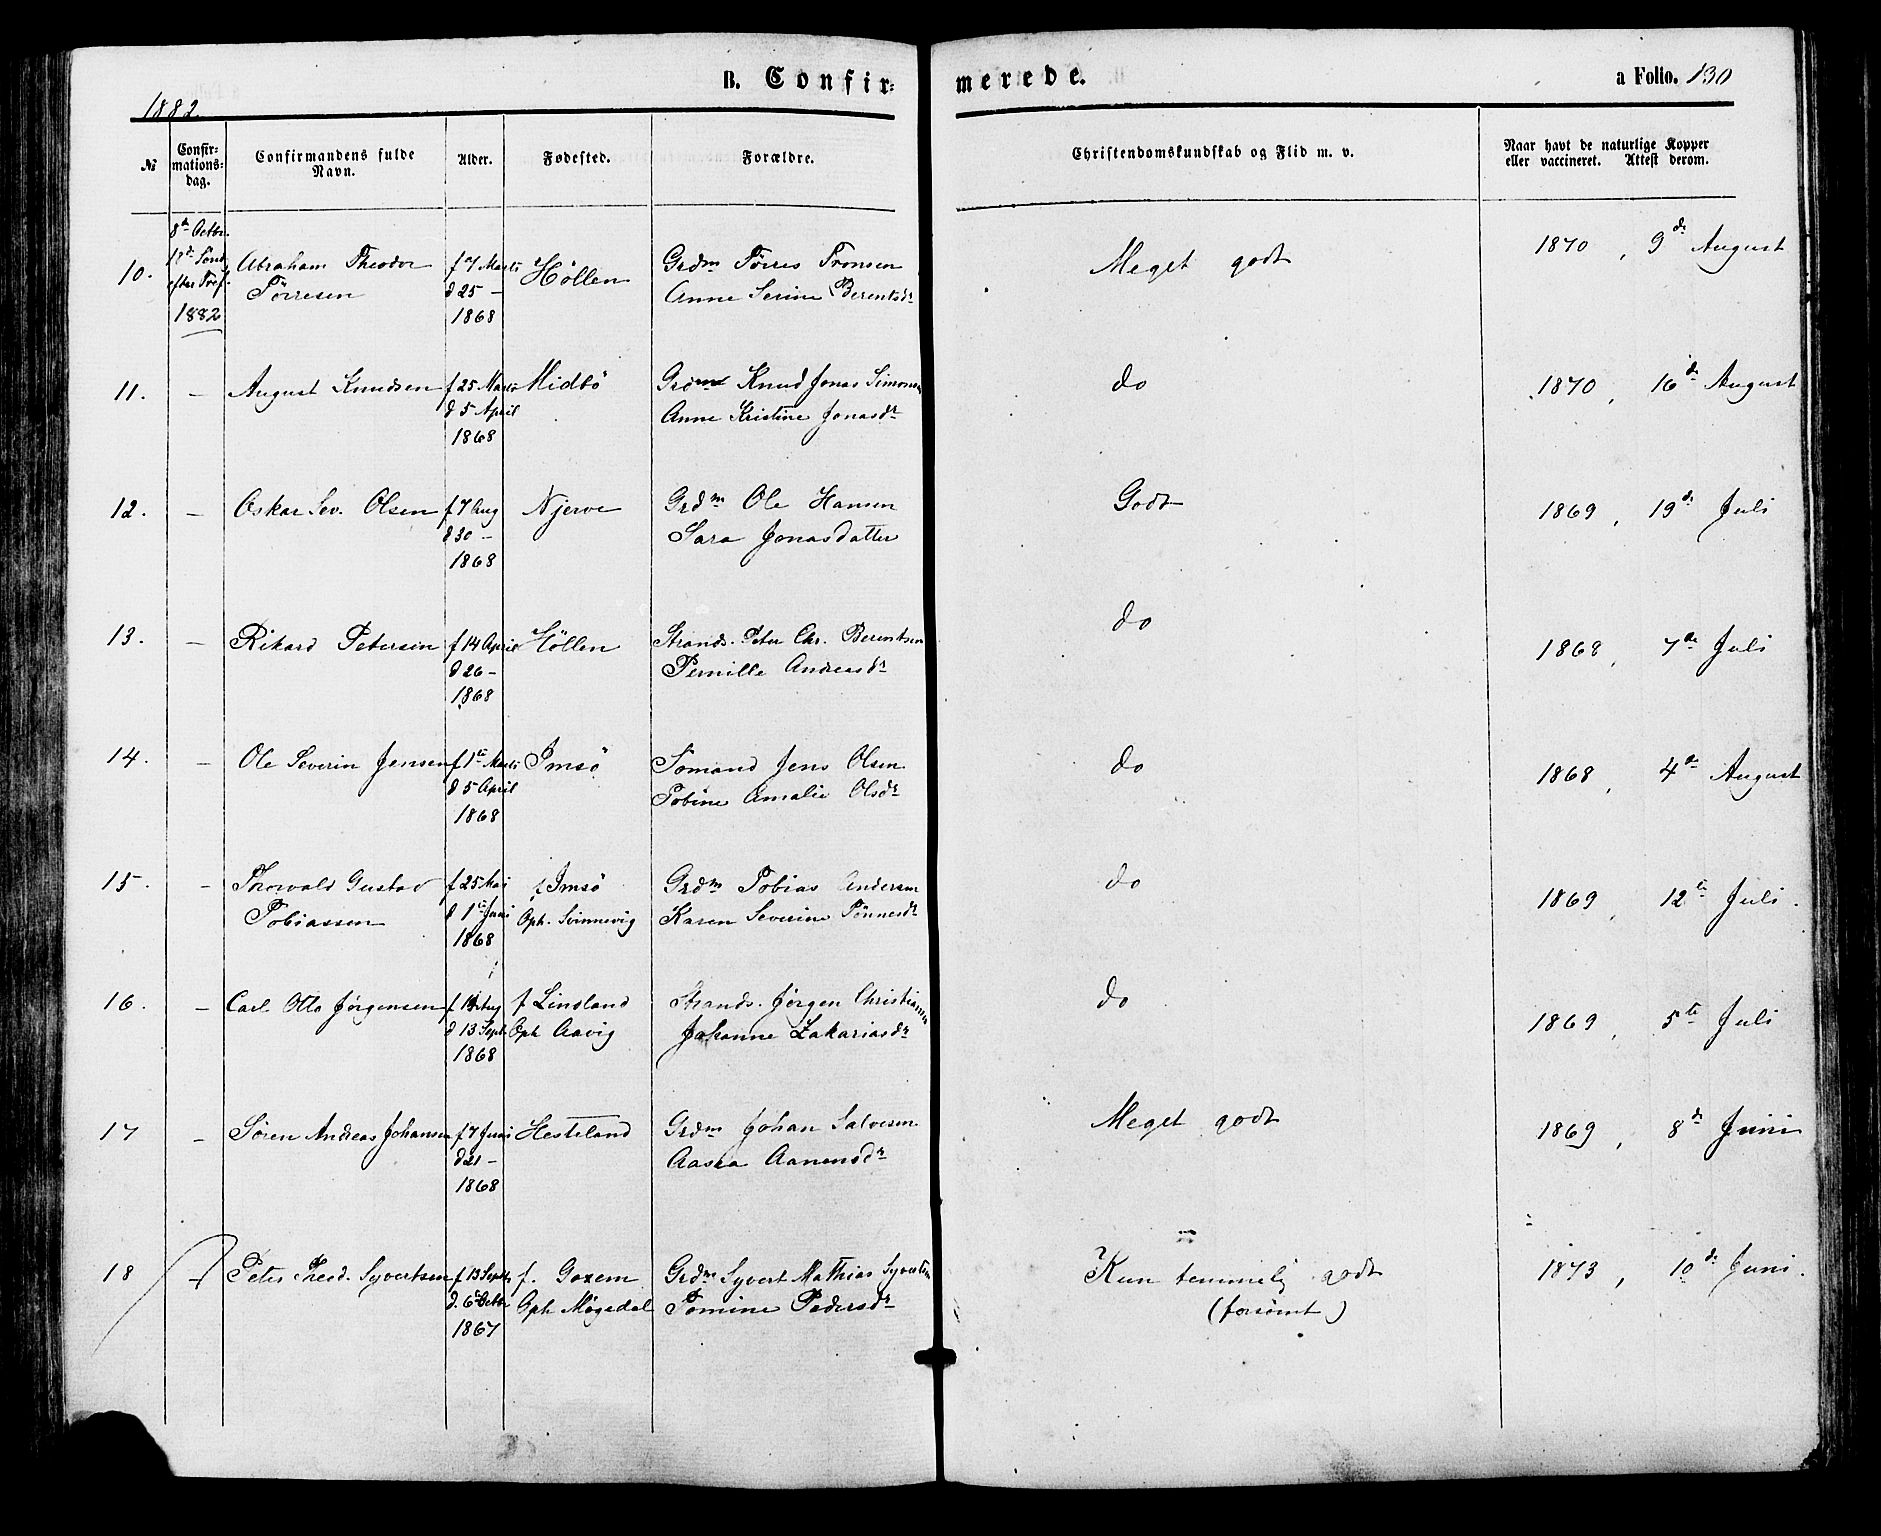 B. Confir-
merede.
a Folio. 130
1882.
№
Confir-
mations-
dag.
Confirmandens fulde
Navn.
Alder.
Fødested.
Forældre.
Christendomskundskab og Flid m. v.
Naar havt de naturlige Kopper
eller vaccineret. Attest derom.
10. 8de Octbr. 18de Sønd. efter Tref. 1882
Abraham Theodor
Törresen
f 7 Marts
d 25 -
1868
Höllen
Grdm Törres Tronsen
Anne Serine Berentsdr
Meget godt
1870, 9de August
11. - August Knudsen
f 25 Marts
d 5 April
1868
Midbö
Grdm Knud Jonas Simonsen
Anne Kristine Jonasdr
do
1870, 16de August
12. - Oskar Sev. Olsen
f 7 Aug
d 30 -
1868
Njerve
Grdm Ole Hansen
Sara Jonasdatter
Godt
1869, 19de Juli
13. - Rikard Petersen
f 14 April
d 26 -
1868
Höllen
Strands. Peter Chr. Berentsen
Pernille Andreasdr
do
1868, 7de Juli
14. - Ole Severin Jensen
f 1ste Marts
d 5 April
1868
Imsö
Sömand Jens Olsen
Tobine Amalie Olsdr
do
1868, 4de August
15. - Thorvald Gustav
Tobiassen
f 25 Mai
d 1ste Juni
1868
f Imsö
Oph. Svinnevig
Grdm Tobias Andersen
Karen Severine Tönnesdr
do
1869, 12te Juli.
16. - Carl Otto Jörgensen
f 14 Aug
d 13 Septr
1868
f Lindland
Oph Aavig
Strands. Jörgen Christiansen
Johanne Zakariasdr
do
1869, 5te Juli
17 - Sören Andreas Johansen
f 7 Juni
d 21 -
1868
Hesteland
Grdm Johan Salvesen
Aasea Aanensdr
Meget godt
1869, 8de Juni
18 - Peter Theod. Syvertsen
f 13 Septr
d. 6 Octbr
1867
f. Goxem
Oph Møgedal
Grdm Syvert Mathias Syvertsen
Tomine Pedersdr
Kun temmelig godt
(forsömt)
1873, 10de Juni.